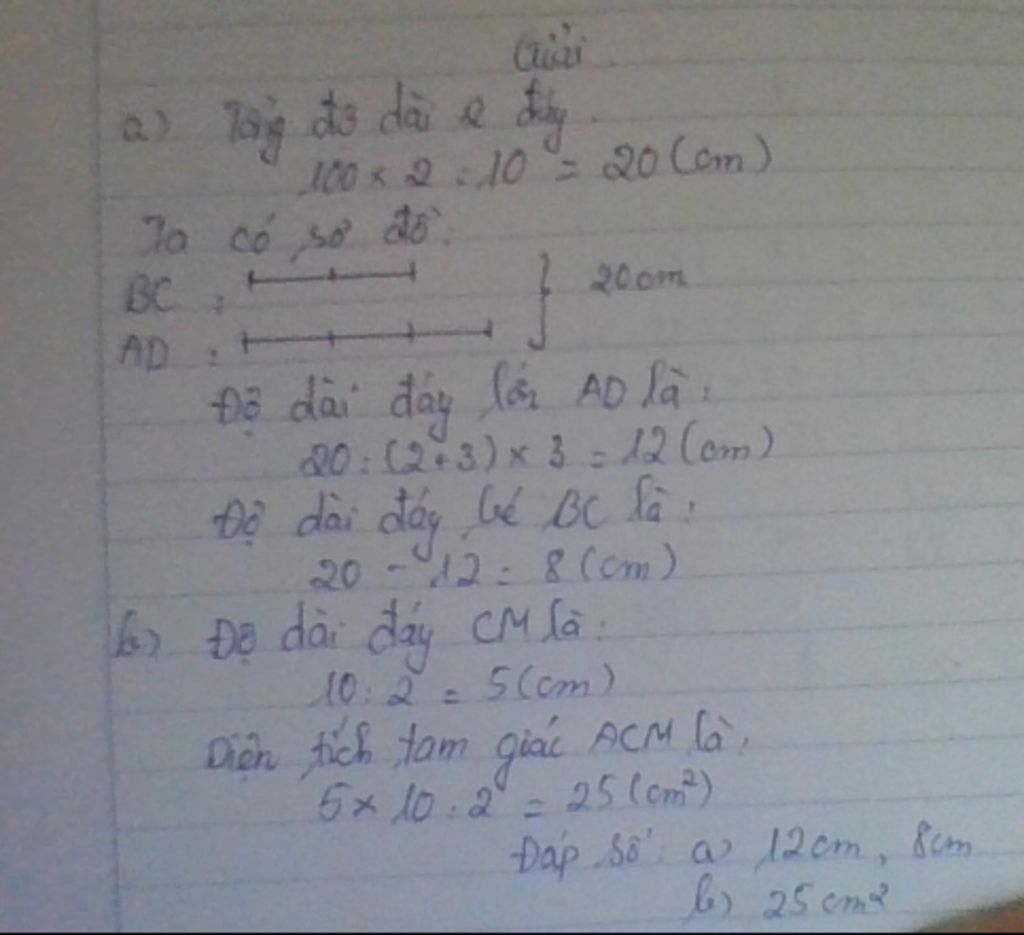 Giải
a) Tổng độ dài 2 đáy.
100 x 2 : 10 = 20 (cm)
Ta có sơ đồ:
BC : 20cm
AD :
Độ dài đáy lớn AD là:
20 : (2+3) x 3 = 12 (cm)
Độ dài đáy bé BC là:
20 - 12 = 8 (cm)
b) Độ dài đáy CM là:
10 : 2 = 5 (cm)
Diện tích tam giác ACM là:
5 x 10 : 2 = 25 (cm²)
Đáp số: a) 12cm, 8cm
b) 25 cm²